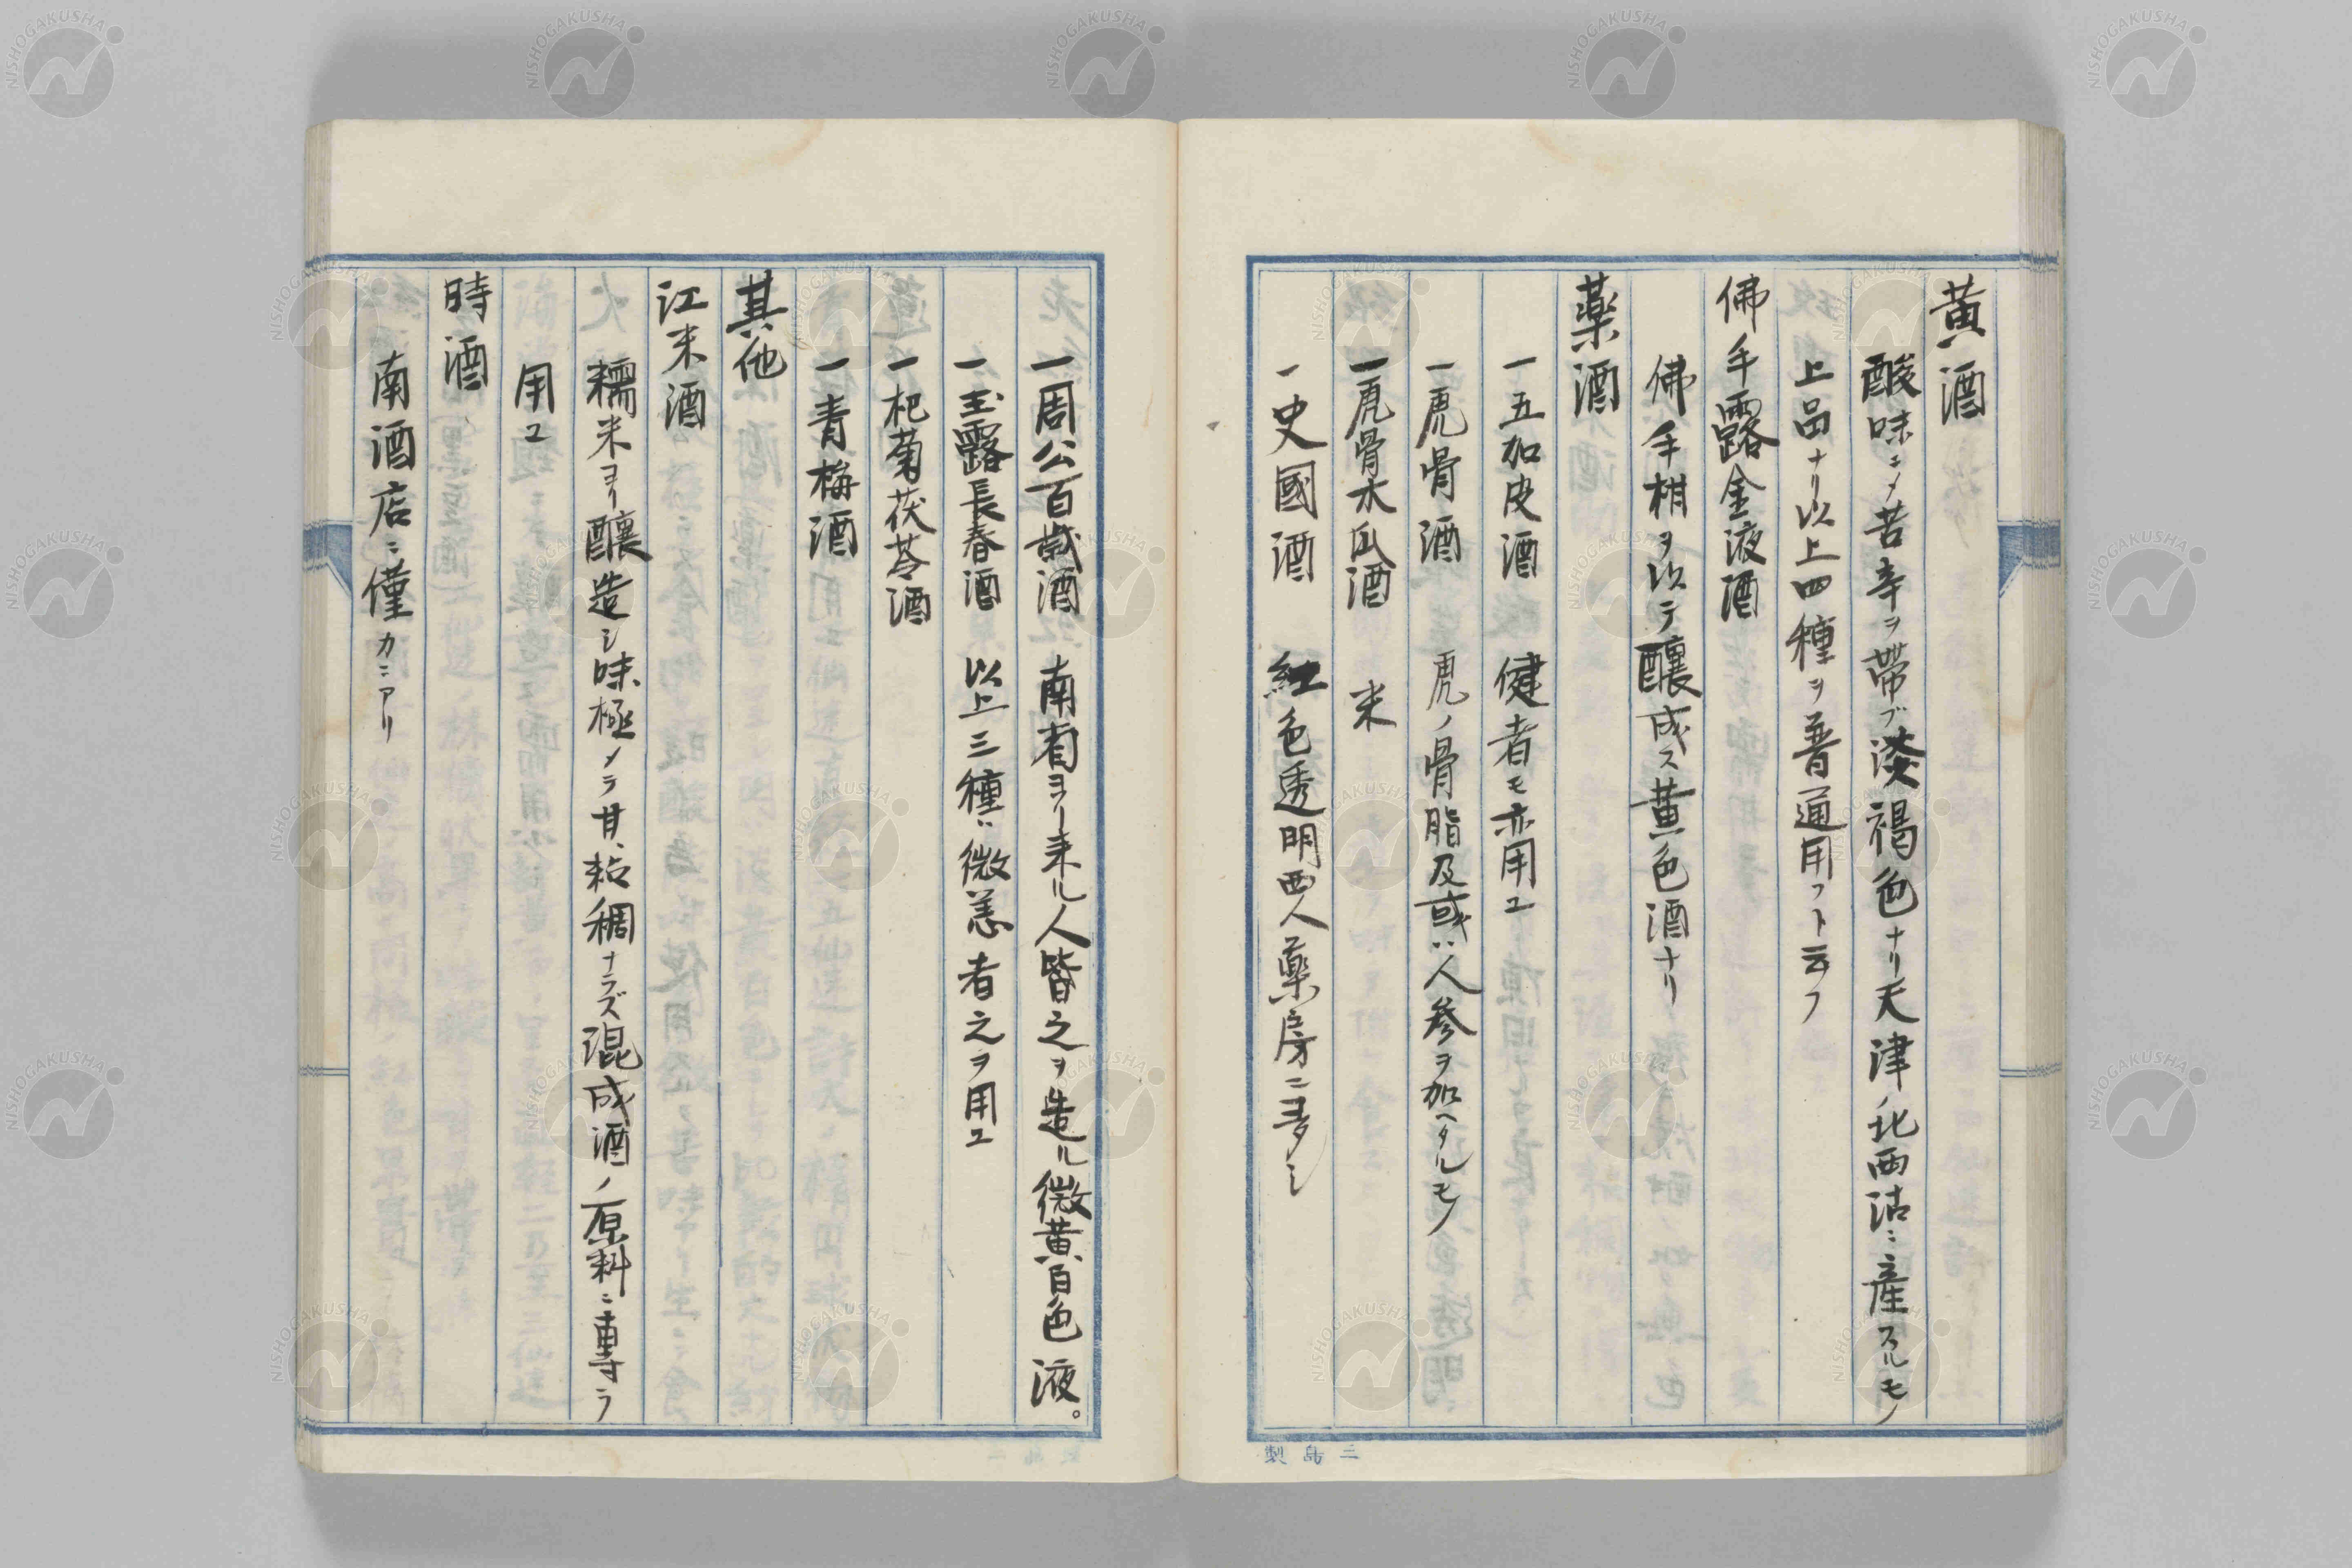 黄酒
酸味ニ〆苦辛ヲ帯ブ淡褐色ナリ天津ノ北西沽ニ産スルモノ
上品ナリ以上四種ヲ普通用フト云フ
佛手露金液酒
佛手柑ヲ以テ醸成ス黄色酒ナリ
薬酒
一五加皮酒 健者モ亦用ユ
一虎骨酒 虎ノ骨脂及或ハ人参ヲ加ヘタルモノ
一虎骨木瓜酒 末
一史國酒 紅色透明西人薬房ニ多シ
三島製
一周公百歳酒 南省ヨリ来ル人皆之ヲ造ル微黄白色液。
一玉露長春酒 以上三種ハ微恙者之ヲ用ユ
一杞菊茯苓酒
一青梅酒
其他
江米酒
糯米ヨリ醸造シ味極メテ甘、粘稠ナラズ混成酒ノ原料ニ専ラ
用ユ
時酒
南酒店ニ僅カニアリ
NISHOGAKUSHA